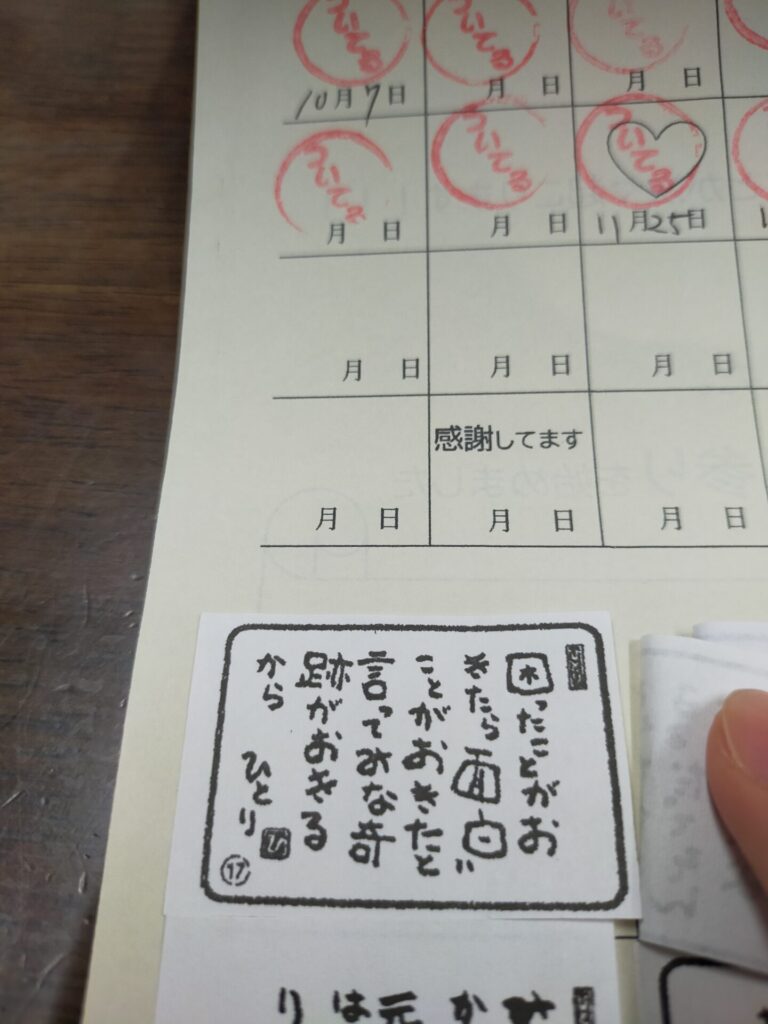 ついてる ついてる ついてる
10月7日 月 日 月 日
ついてる ついてる ついてる
月 日 月 日 11月25日
月 日 月 日 月 日
感謝してます
月 日 月 日 月 日
ひとり
困ったことがお
きたら面白い
ことがおきたと
言ってみな奇
跡がおきる
から
ひとり
ひ
17